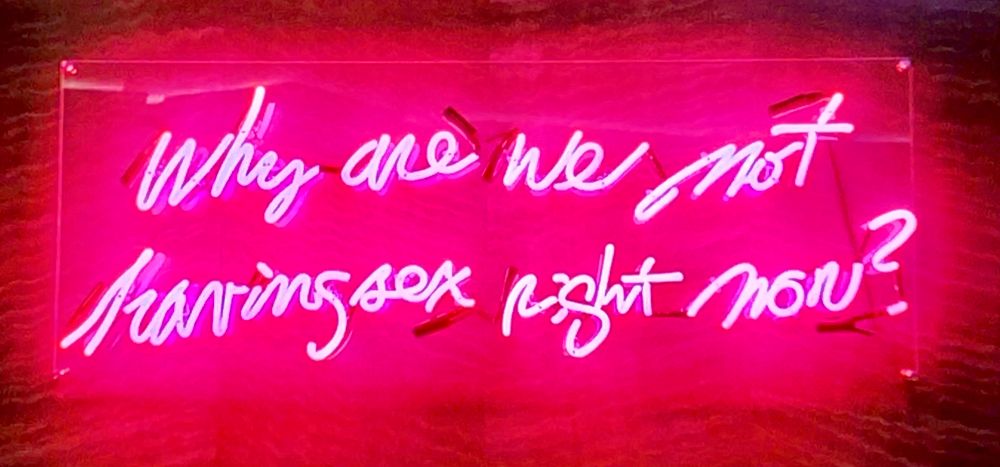 Why are we not
having sex right now?